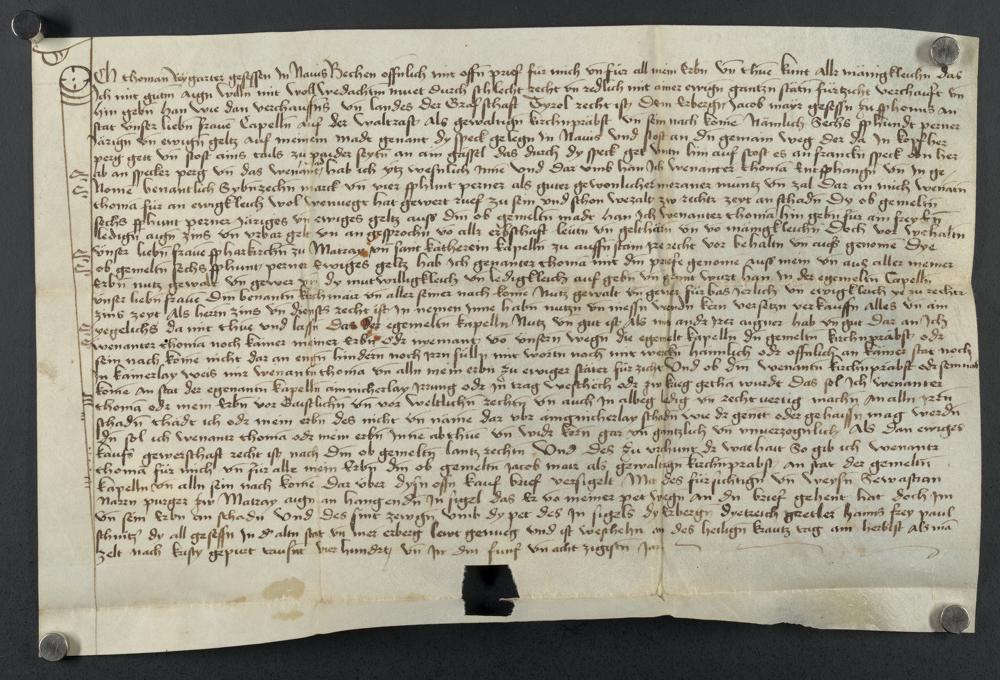 Ich thoman Weygarter gesessen In Navis Bechen offnlich mit offn prief für mich vn für all mein Erbn Vn thue kunt Alln männigkleichn das
Ich mit gutm Aygn willn mit woll wedachtm muet durch schlecht recht vn redlich mit ainer ewign gantzn stätn furtzicht verchaufft vn
hin gebn han wie dan verchauffns vn landes der Grafschaft Tyrol recht ist Dem Erbergn Jacob mayr gesessn zu pfhons An
stat vnser liebn frauen Capelln Auf der Waltrast Als gewaltign kirchprabst vn sein nach kome Nämlich Sechs phundt perner
Järign vn ewign geltz auf meinem madt genant dy speck gelegn In Navis vnd stost an dn gemain weg der da In köpfher
perg gett vn stost ains tails zu payder seytn an ain gässel das durch dy speck get vntn hin auf stost es an franckn speck vn her
ab an speckher perg vn das wenant hab ich ytz wesnlich Inne vnd dar vmb han Ich wenanter thoma Emtphangn vn In ge
Nome benantlich Sybnzechn marck vn vier phhunt perner als guter gewonlicher meraner muntz vn zal Dar an mich wenantn
thoma für an ewigkleich wol wenuegt hat gewert ruef zu sein vnd schon wezalt zu rechtr zeyt an schadn Dy ob gemeltn
sechs phhunt perner Järiges vn ewiges geltz auss din ob gemeltn madt han Ich wenanter thoma hin gebn für ain freys
ledign aign zins vn vrbar gelt vn an gesprochn vo allr erbschaft leutn vn geltschuln vn vo mänigkleichn Doch vor wehaltn
vnser liebn fraue phharkirchn zu Matray vn sant katherein kapelln zu auffn stain ire recht vor behaltn vn auss genome Dye
ob gemeltn sechs phhunt perner Ewiges geltz hab Ich genanter thoma mit din priefe genome auss mein vn aus aller meiner
Erbn nutz gewalt vn gewer vn dy mutwilligkleich vn ledigkleich auf gebn vn geant wurt han In der egemeltn Capelln
vnser liebn fraue Din benantn kirchmair vn aller seiner nach kome Nutz gewalt vn gewer für bas Jerlich vn ewigkleich ye zu rechtr
zins zeyt Als herrn zins vn dyensts recht ist In nemen Inne habn nutzn vn niessn wendn kern versetzn verkauffn Alles vn ain
yegelichs da mit thue vnd lassn Das der egemeltn kapelln Nutz vn gut ist Als mit andr Irer aigner hab vn gut Dar an Ich
wenanter thoma noch kainer meiner Erbn Odr niemant vo vnsern wegn die egemelt kapelln dn gemeltn kirchprabst odr
sein nach kome nicht dar an engn hindern noch Irrn sulln mit wortn noch mit werchn haimlich odr offnlich an kainer stat noch
In kainerlay weis mir wenantn thoma vn alln mein erbn zu ewiger stäter für zicht Vnd ob din wenantn kirchprabst odr sein nach
kome An stat der egenantn kapelln ainicherlay Irrung odr In trag weschech odr zu kieg getha wurde Das sol Ich wenanter
thoma odr mein Erbn vor Gaistlichn vn vor weltlichn rechtn vn auch In albeg ledig vn rechtuertig machn An alln Irrn
schadn Thätt Ich odr mein erbn des nicht vn näme dar vbr ainginicherlay schadn wie dr genēt oder gehaissn mag werdn
Dn sol Ich wenanter thoma odr mein erbn Inne abthue vn widr kern gar vn gäntzlich vn vnuerzognlich Als dan ewiges
kaufs gewerschaft recht ist nach din ob gemeltn lantz rechtn Vnd Des zu vrchunt dr warhait So gib ich wenantr
thoma für mich vn für alle mein Erbn din ob gemeltn Jacob mair als gewaltign kirchprabst An stat der gemeltn
kapelln vn alln sein nach kome Dar vber dysn offn kauf brief versigelt Mit des fürsichtign vn weysn Sewastian
Narrn purger zu Matray aign an hangendn In sigel das Er vo meiner pet wegn An dn brief gehenkt hat doch Im
vn sein Erbn an schadn Vnd des sint zewgn vmb dy pet des In sigels dy Erbergn dyetreich gretler hanns frey paul
schmitz dy all gesessn In d' altn stat vn mer erberg lewt genueg Vnd ist weschehn an des heilign krautz tag am herbst Als man
zelt nach kristy gepurt tausnt vier hundrt vn In dm funf vn acht zigistn Jar